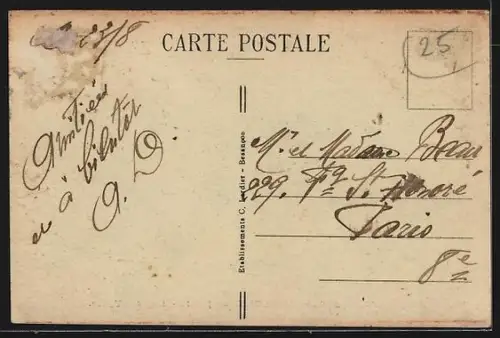 CARTE POSTALE
25
23/8
Amitiés
et à bientôt
A. D.
Etablissements C. Lardier - Besançon
Mr et Madame
229. Fg St Honoré
Paris
8e